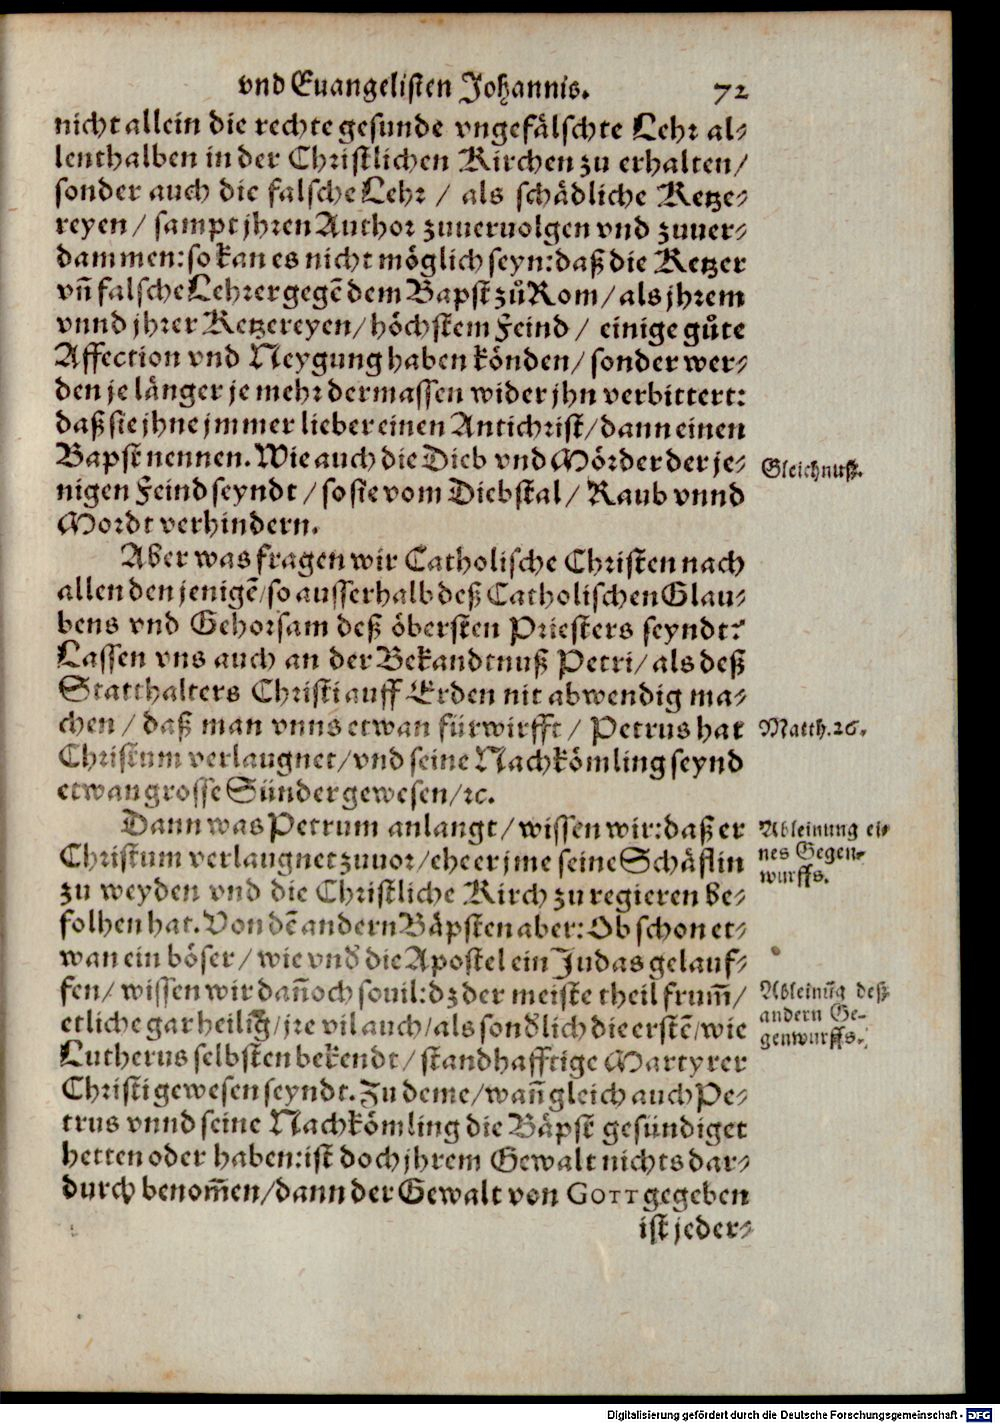 vnd Euangelisten Johannis. 72
nicht allein die rechte gesunde vngefälschte Lehr al-
lenthalben in der Christlichen Kirchen zu erhalten/
sonder auch die falsche Lehr / als schädliche Ketze-
reyen / sampt jhren Author zuueruolgen vnd zuuer-
dammen: so kan es nicht möglich seyn: daß die Ketzer
vñ falsche Lehrer gegẽ dem Bapst zů Rom / als jhrem
vnnd jhrer Ketzereyen / höchstem Feind / einige gůte
Affection vnd Neygung haben könden / sonder wer-
den je länger je mehr dermassen wider jhn verbittert:
daß sie jhne jmmer lieber einen Antichrist / dann einen
Bapst nennen. Wie auch die Dieb vnd Mörder der je-
Gleichnuß.
nigen Feind seyndt / so sie vom Diebstal / Raub vnnd
Mordt verhindern.
Aber was fragen wir Catholische Christen nach
allen den jenigẽ / so ausserhalb deß Catholischen Glau-
bens vnd Gehorsam deß öbersten Priesters seyndt?
Lassen vns auch an der Bekandtnuß Petri / als deß
Statthalters Christi auff Erden nit abwendig ma-
chen / daß man vnns etwan fürwirfft / Petrus hat
Matth. 26.
Christum verlaugnet / vnd seine Nachkömling seynd
etwan grosse Sünder gewesen / ꝛc.
Dann was Petrum anlangt / wissen wir: daß er
Ableinung ei-
nes Gegen-
wurffs.
Christum verlaugnet zuuor / ehe er jme seine Schäflin
zu weyden vnd die Christliche Kirch zu regieren be-
folhen hat. Von dẽ andern Bäpsten aber: Ob schon et-
wan ein böser / wie vnd̃ die Apostel ein Judas gelauf-
fen / wissen wir dañoch souil: dz der meiste theil frum̃ /
Ableinũg deß
andern Ge-
genwurffs.
etliche gar heilig / jre vil auch / als sond̃lich die erstẽ / wie
Lutherus selbsten bekendt / standhafftige Martyrer
Christi gewesen seyndt. Zu deme / wañ gleich auch Pe-
trus vnnd seine Nachkömling die Bäpst gesündiget
hetten oder haben: ist doch jhrem Gewalt nichts dar-
durch benom̃en / dann der Gewalt von GOTT gegeben
ist jeder-
Digitalisierung gefördert durch die Deutsche Forschungsgemeinschaft - DFG